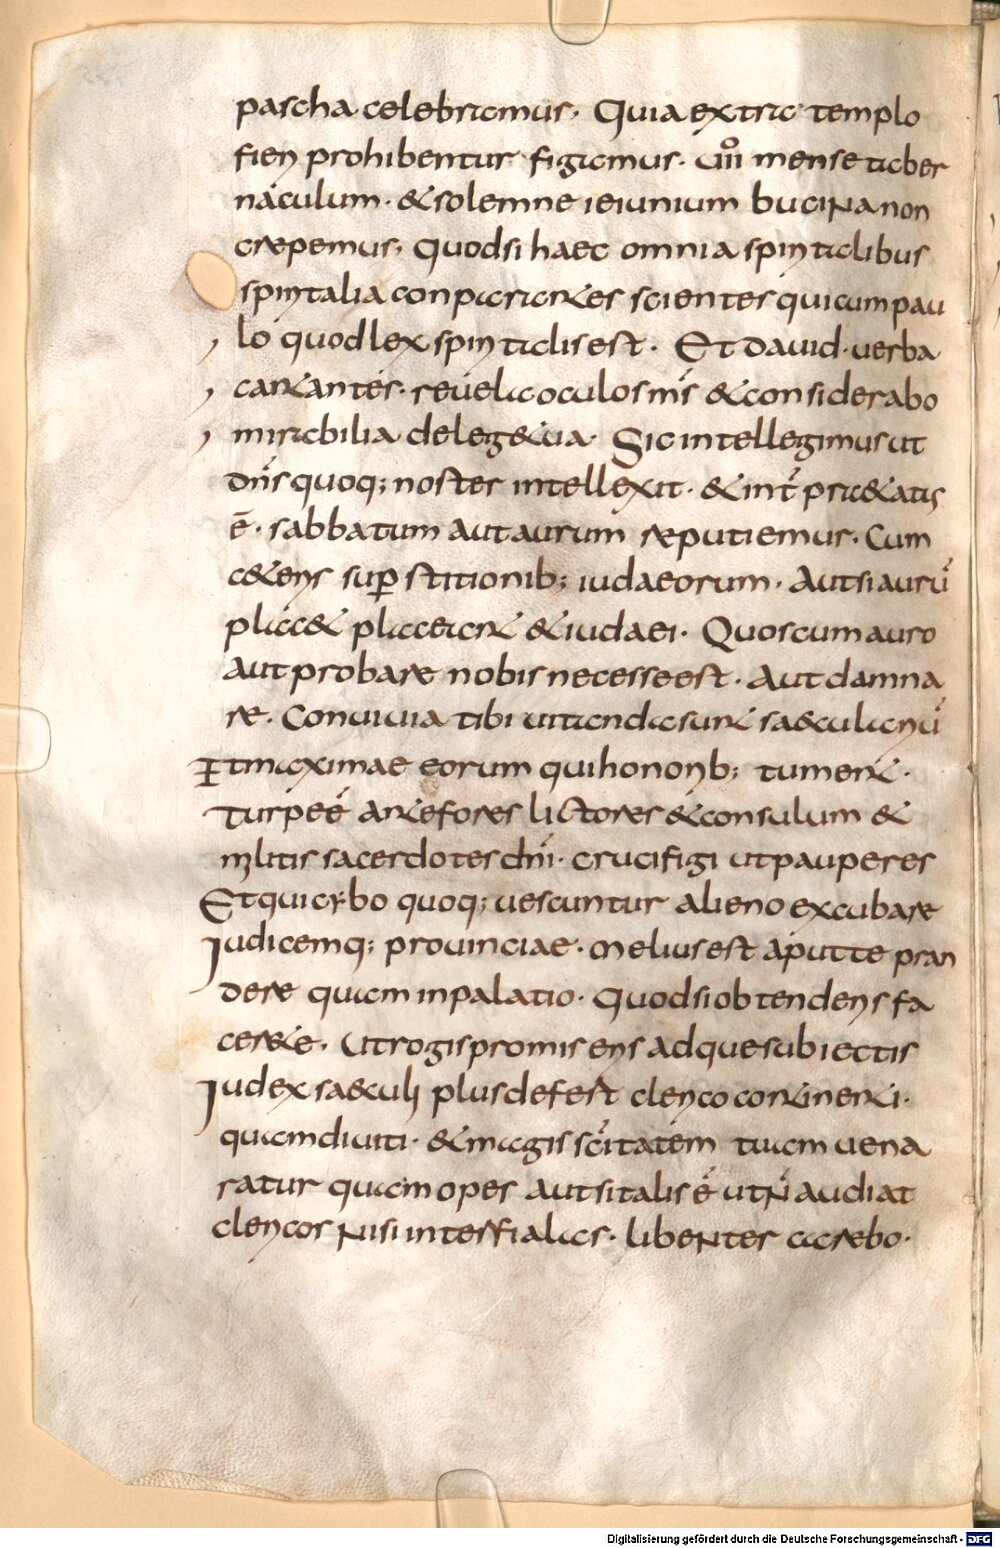 pascha celebramus. Quia extra templo
fieri prohibentur figamus. VIIII mense taber
náculum. & solemne ieiunium bucina non
crepemus, quodsi haec omnia spiritalibus
spiritalia conparantes scientes qui cum pau
lo quod lex spiritalis est. Et dauid verba
cantantes. reuela oculos ms & considerabo
mirabilia de lege tua. Sic intellegimus ut
dns quoq; noster intellexit. & int praetatis
ē. sabbatum Aut aurum reputiemus. Cum
ceteris sup stitionib; iudaeorum. Aut si aurū
placet placeant & iudaei. Quos cum auro
aut probare nobis necesse est. Aut damna
re. Conuiuia tibi uitanda sunt saecularium
et maxime eorum qui honorib; tument.
Turpe ē ante fores lictores & consulum &
militis sacerdotes dni. crucifigi ut pauperes
Et qui cybo quoq; uescuntur alieno excubare
Iudicemq; prouinciae. melius est aput te pran
dere quam in palatio. Quodsi obtenderis fa
cere te. Ut rogis pro miseris adque subiectis
Iudex saeculi plus defest clerico continenti.
quam diuiti. & magis scītatem tuam uena
ratur quam opes Aut si talis ē ut n audiat
clericos nisi inter fialas. libenter carebo.
Digitalisierung gefördert durch die Deutsche Forschungsgemeinschaft - DFG